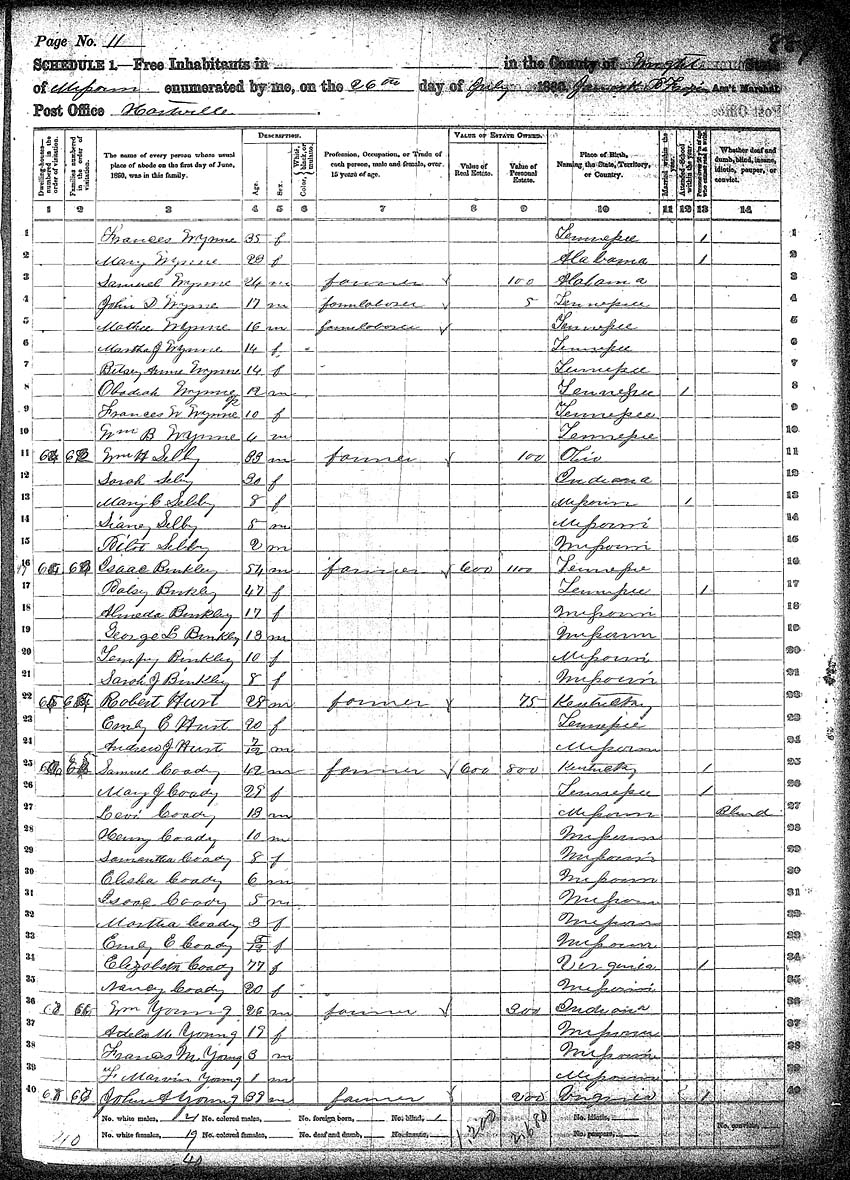 Page No. 11
SCHEDULE 1.—Free Inhabitants in in the County of Wright State
of Missouri enumerated by me, on the 26th day of July 1860. Ass't Marshal.
Post Office Hartville
DESCRIPTION. VALUE OF ESTATE OWNED.
Dwelling-houses—numbered in the order of visitation. Families numbered in the order of visitation. The name of every person whose usual place of abode on the first day of June, 1860, was in this family. Age. Sex. Color, White, black, or mulatto. Profession, Occupation, or Trade of each person, male and female, over 15 years of age. Value of Real Estate. Value of Personal Estate. Place of Birth, Naming the State, Territory, or Country. Married within the year. Attended School within the year. Whether deaf and dumb, blind, insane, idiotic, pauper, or convict.
1 2 3 4 5 6 7 8 9 10 11 12 13 14
1 Frances Wynne 35 f Tennessee / 1
2 Mary Wynne 23 f Alabama / 2
3 Samuel Wynne 24 m farmer 100 Alabama 3
4 John D Wynne 17 m farmlaborer 5 Tennessee 4
5 Mathee Wynne 16 m farmlaborer Tennessee 5
6 Martha J Wynne 14 f Tennessee 6
7 Betsey Anne Wynne 14 f Tennessee 7
8 Obadiah Wynne 12 m Tennessee 1 8
9 Frances W Wynne 10 f Tennessee 9
10 Wm B Wynne 4 m Tennessee 10
11 Wm H Selby 33 m farmer 100 Ohio 11
12 Sarah Selby 30 f Indiana 12
13 Mary C Selby 8 f Missouri 1 13
14 Selby 5 m Missouri 14
15 Selby 2 m Missouri 15
16 Isaac Binkley 54 m farmer 600 1100 Tennessee 16
17 Betsy Binkley 47 f Tennessee / 17
18 Almeda Binkley 17 f Missouri 18
19 George L Binkley 13 m Missouri 19
20 Tempy Binkley 10 f Missouri 20
21 Sarah J Binkley 8 f Missouri 21
22 Robert Hurt 28 m farmer 75 Kentucky 22
23 Emily C Hurt 20 f Tennessee 23
24 Andrew J Hurt 7/12 m Missouri 24
25 Samuel Coady 42 m farmer 600 800 Kentucky / 25
26 Mary J Coady 29 f Tennessee / 26
27 Levi Coady 13 m Missouri Blind 27
28 Henry Coady 10 m Missouri 28
29 Samantha Coady 8 f Missouri 29
30 Elisha Coady 6 m Missouri 30
31 Isaac Coady 5 m Missouri 31
32 Martha Coady 3 f Missouri 32
33 Emily E Coady f Missouri 33
34 Elizabeth Coady 77 f Virginia / 34
35 Nancy Coady 20 f Missouri 35
36 Wm Young 26 m farmer 300 Indiana 36
37 Adela M Young 19 f Missouri 37
38 Frances M Young 3 m Missouri 38
39 F Marvin Young 1 m Missouri 39
40 John A Young 39 m farmer 200 Virginia / 40
No. white males, 21 No. colored males, No. foreign born, No. blind, 1 1,200 2,680 No. idiotic, No. convicts,
No. white females, 19 No. colored females, No. deaf and dumb, No. insane, No. paupers,
40